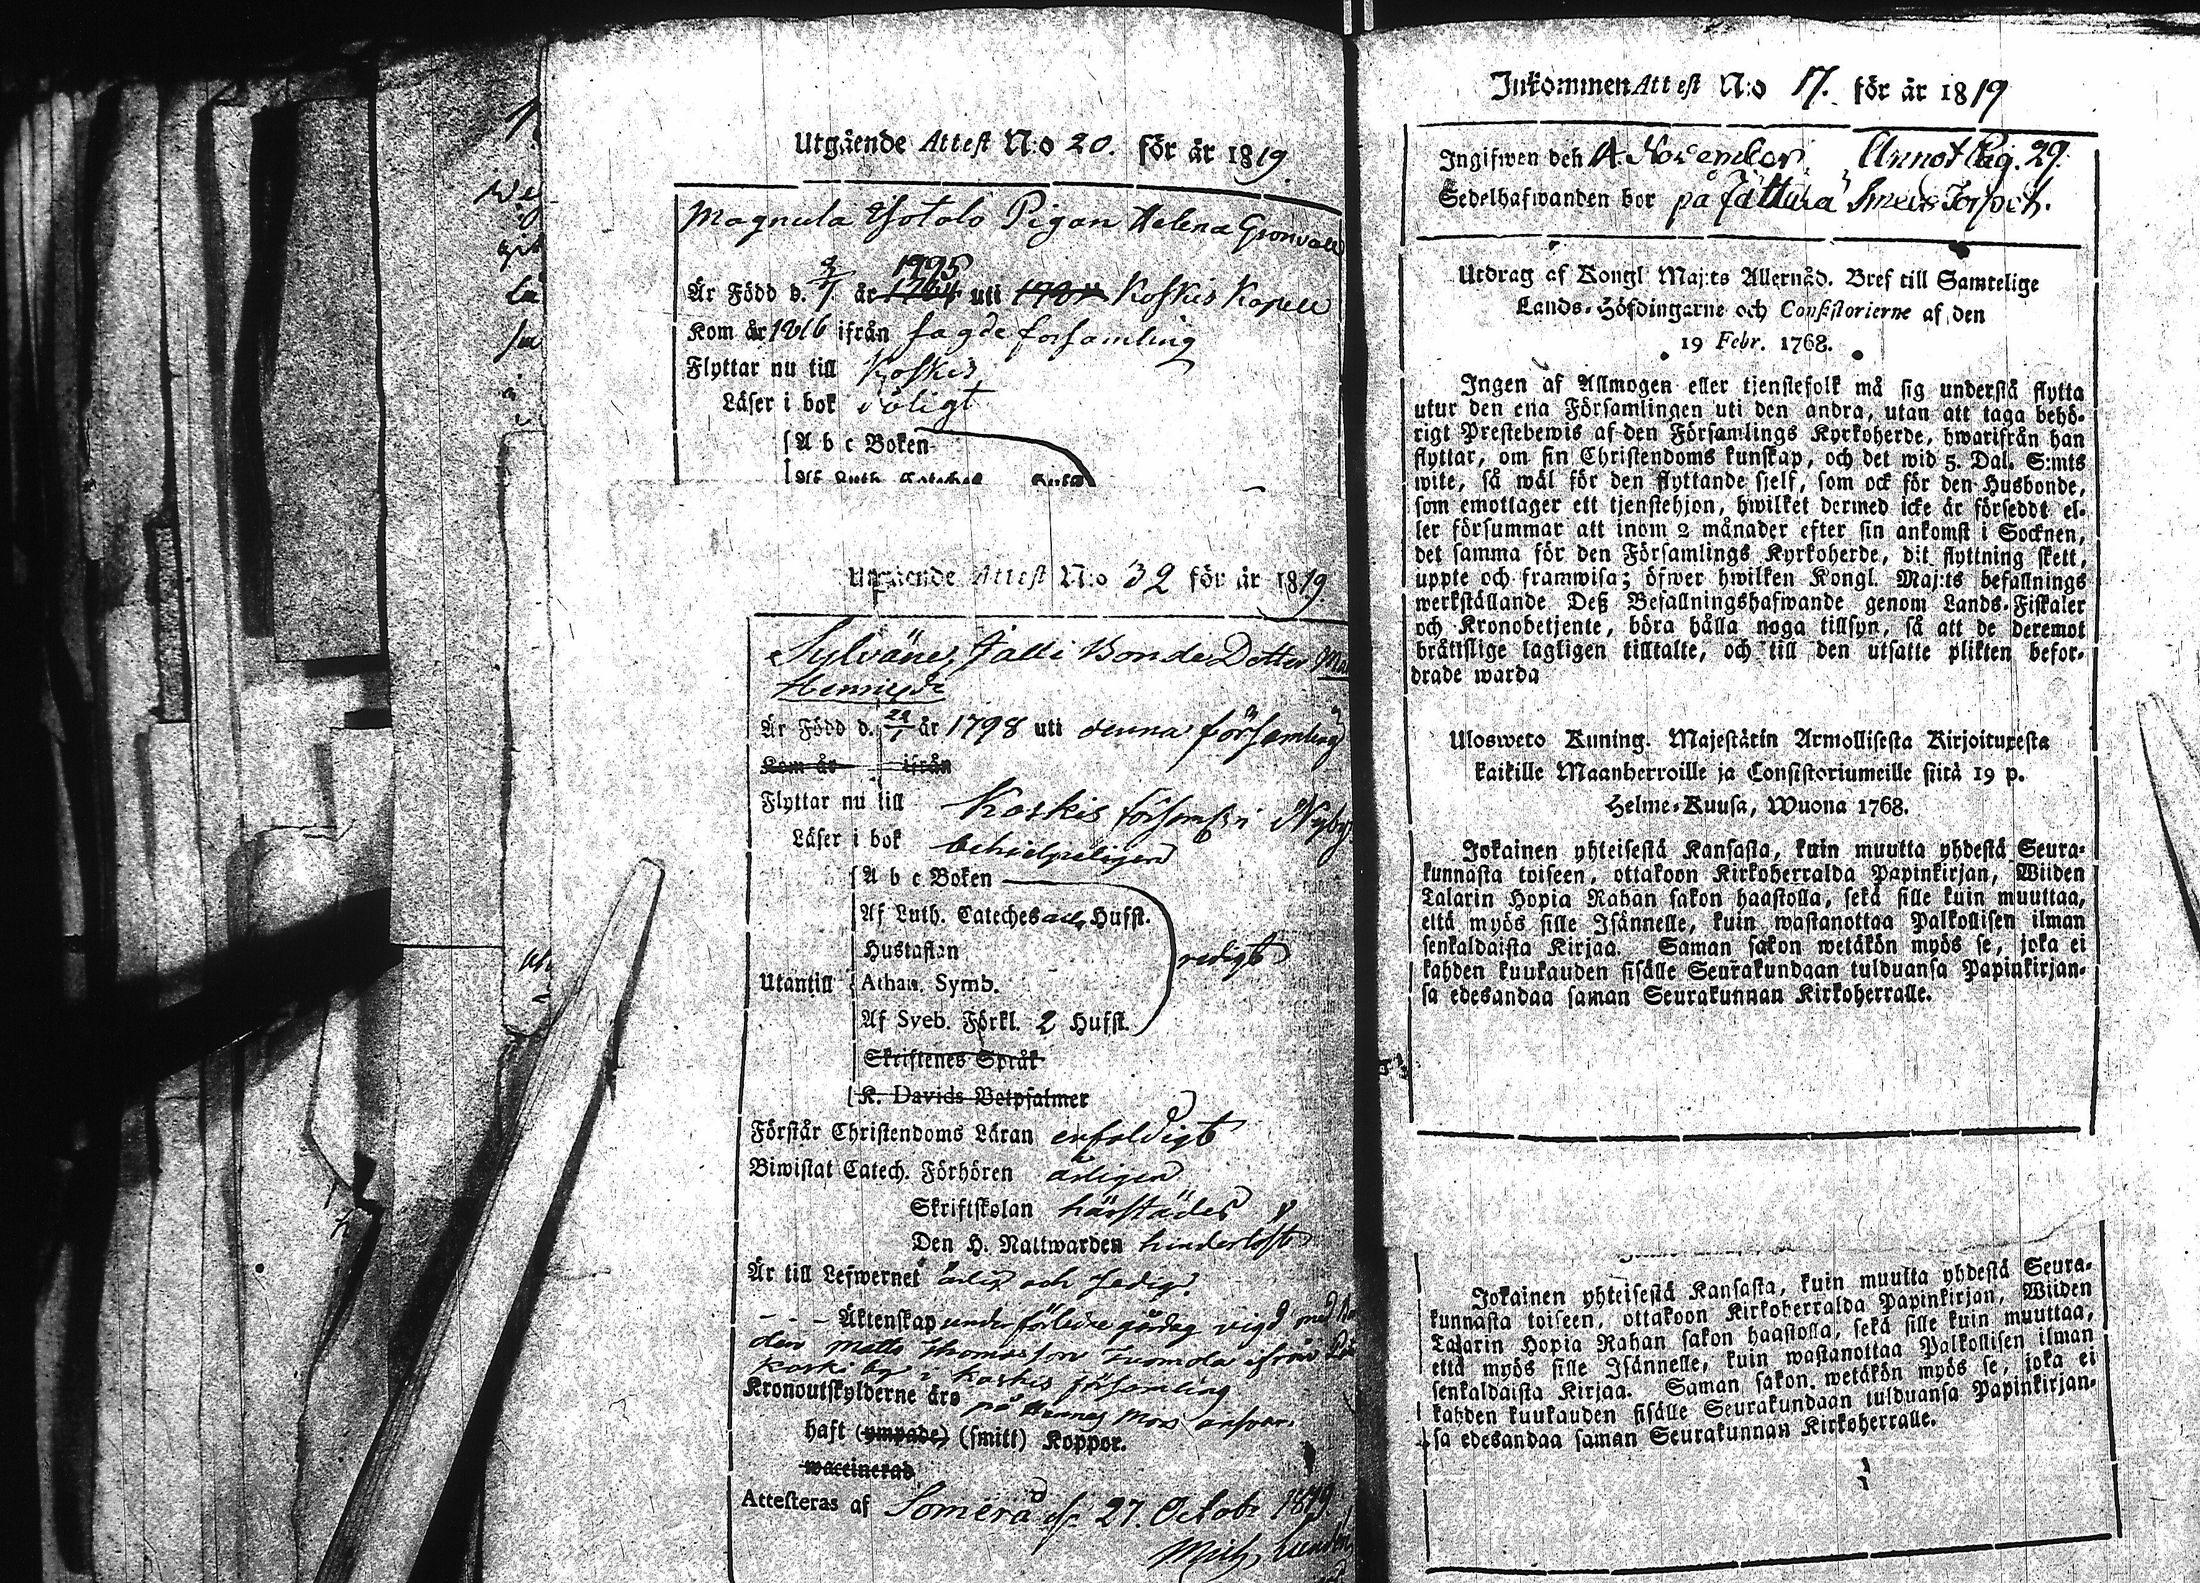 Utgående Attest N:o 20. för år 1819.
Magnula Ysotalo Pigan Helena Gronvall
Är Född d. 2/7 år 1764 1795 uti Koskis Kapell
Kom år 1816 ifrån sagde forsamling
Flyttar nu till Koskis
Läser i bok
A b c Boken
Utgående Attest N:o 32 för år 1819.
Sylvänes, Jalli Bonde Dotter
Henricsdr
Är Född d. 22/1 år 1798 uti denna församling
Kom år ifrån
Flyttar nu till Koskis
Läser i bok behielpeligen
A b c Boken
Af Luth. Cateches all Hufst.
Hustaflan redigt
Utantill Athan. Symb.
Af Sveb. Förkl. 2 Hufst.
Skriftenes Språk
K. Davids Botpsalmer
Förstår Christendoms Läran enfaldigt
Biwistat Catech. Förhören årligen
Skriftskolan härstädes
Den H. Nattwarden hinderlöst
Är till Lefwernet ärlig och sedig.
- - - Äktenskap under förledne gårdag vigd med
den Matts Thomasson Tuomola ifrån
Koski by i Koskis församling
Kronoutskylderne äro på Hennes Mors ansvar.
haft (ympade) (smitt) Koppor.
waccinerad
Attesteras af Somero d. 27. Octobr 1819.
Inkommen Attest N:o 17. för år 1819
Ingifwen den 14 November. Annot Pag. 29.
Sedelhafwanden bor på Jättula Smeds Torpet.
Utdrag af Kongl. Maj:ts Allernåd. Bref till Samtelige
Lands-Höfdingarne och Consistorierne af den
19 Febr. 1768.
Ingen af Allmogen eller tjenstefolk må sig understå flytta
utur den ena Församlingen uti den andra, utan att taga behö-
rigt Prestebewis af den Församlings Kyrkoherde, hwarifrån han
flyttar, om sin Christendoms kunskap, och det wid 5. Dal. S:mts
wite, så wäl för den flyttande sjelf, som ock för den Husbonde,
som emottager ett tjenstehjon, hwilket dermed icke är förseddt el-
ler försummar att inom 2 månader efter sin ankomst i Socknen,
det samma för den Församlings Kyrkoherde, dit flyttning skett,
uppte och framwisa; öfwer hwilken Kongl. Maj:ts befallnings
werkställande Deß Befallningshafwande genom Lands-Fiskaler
och Kronobetjente, böra hålla noga tillsyn, så att de deremot
brätislige lagligen tilltalte, och till den utsatte plikten befor-
drade warda
Ulosweto Kuning. Majestätin Armollisesta Kirjoituxesta
kaikille Maanherroille ja Consistoriumeille siitä 19 p.
Helme-Kuusa, Wuona 1768.
Jokainen yhteisestä Kansasta, kuin muutta yhdestä Seura-
kunnasta toiseen, ottakoon Kirkoherralda Papinkirjan, Wiiden
Talarin Hopia Rahan sakon haastolla, sekä sille kuin muuttaa,
että myös sille Isännelle, kuin wastanottaa Palkollisen ilman
senkaldaista Kirjaa. Saman sakon wetäkön myös se, joka ei
kahden kuukauden sisälle Seurakundaan tulduansa Papinkirjan-
sa edesandaa saman Seurakunnan Kirkoherralle.
Jokainen yhteisestä Kansasta, kuin muutta yhdestä Seura-
kunnasta toiseen, ottakoon Kirkoherralda Papinkirjan, Wiiden
Talarin Hopia Rahan sakon haastolla, sekä sille kuin muuttaa,
että myös sille Isännelle, kuin wastanottaa Palkollisen ilman
senkaldaista Kirjaa. Saman sakon wetäkön myös se, joka ei
kahden kuukauden sisälle Seurakundaan tulduansa Papinkirjan-
sa edesandaa saman Seurakunnan Kirkoherralle.